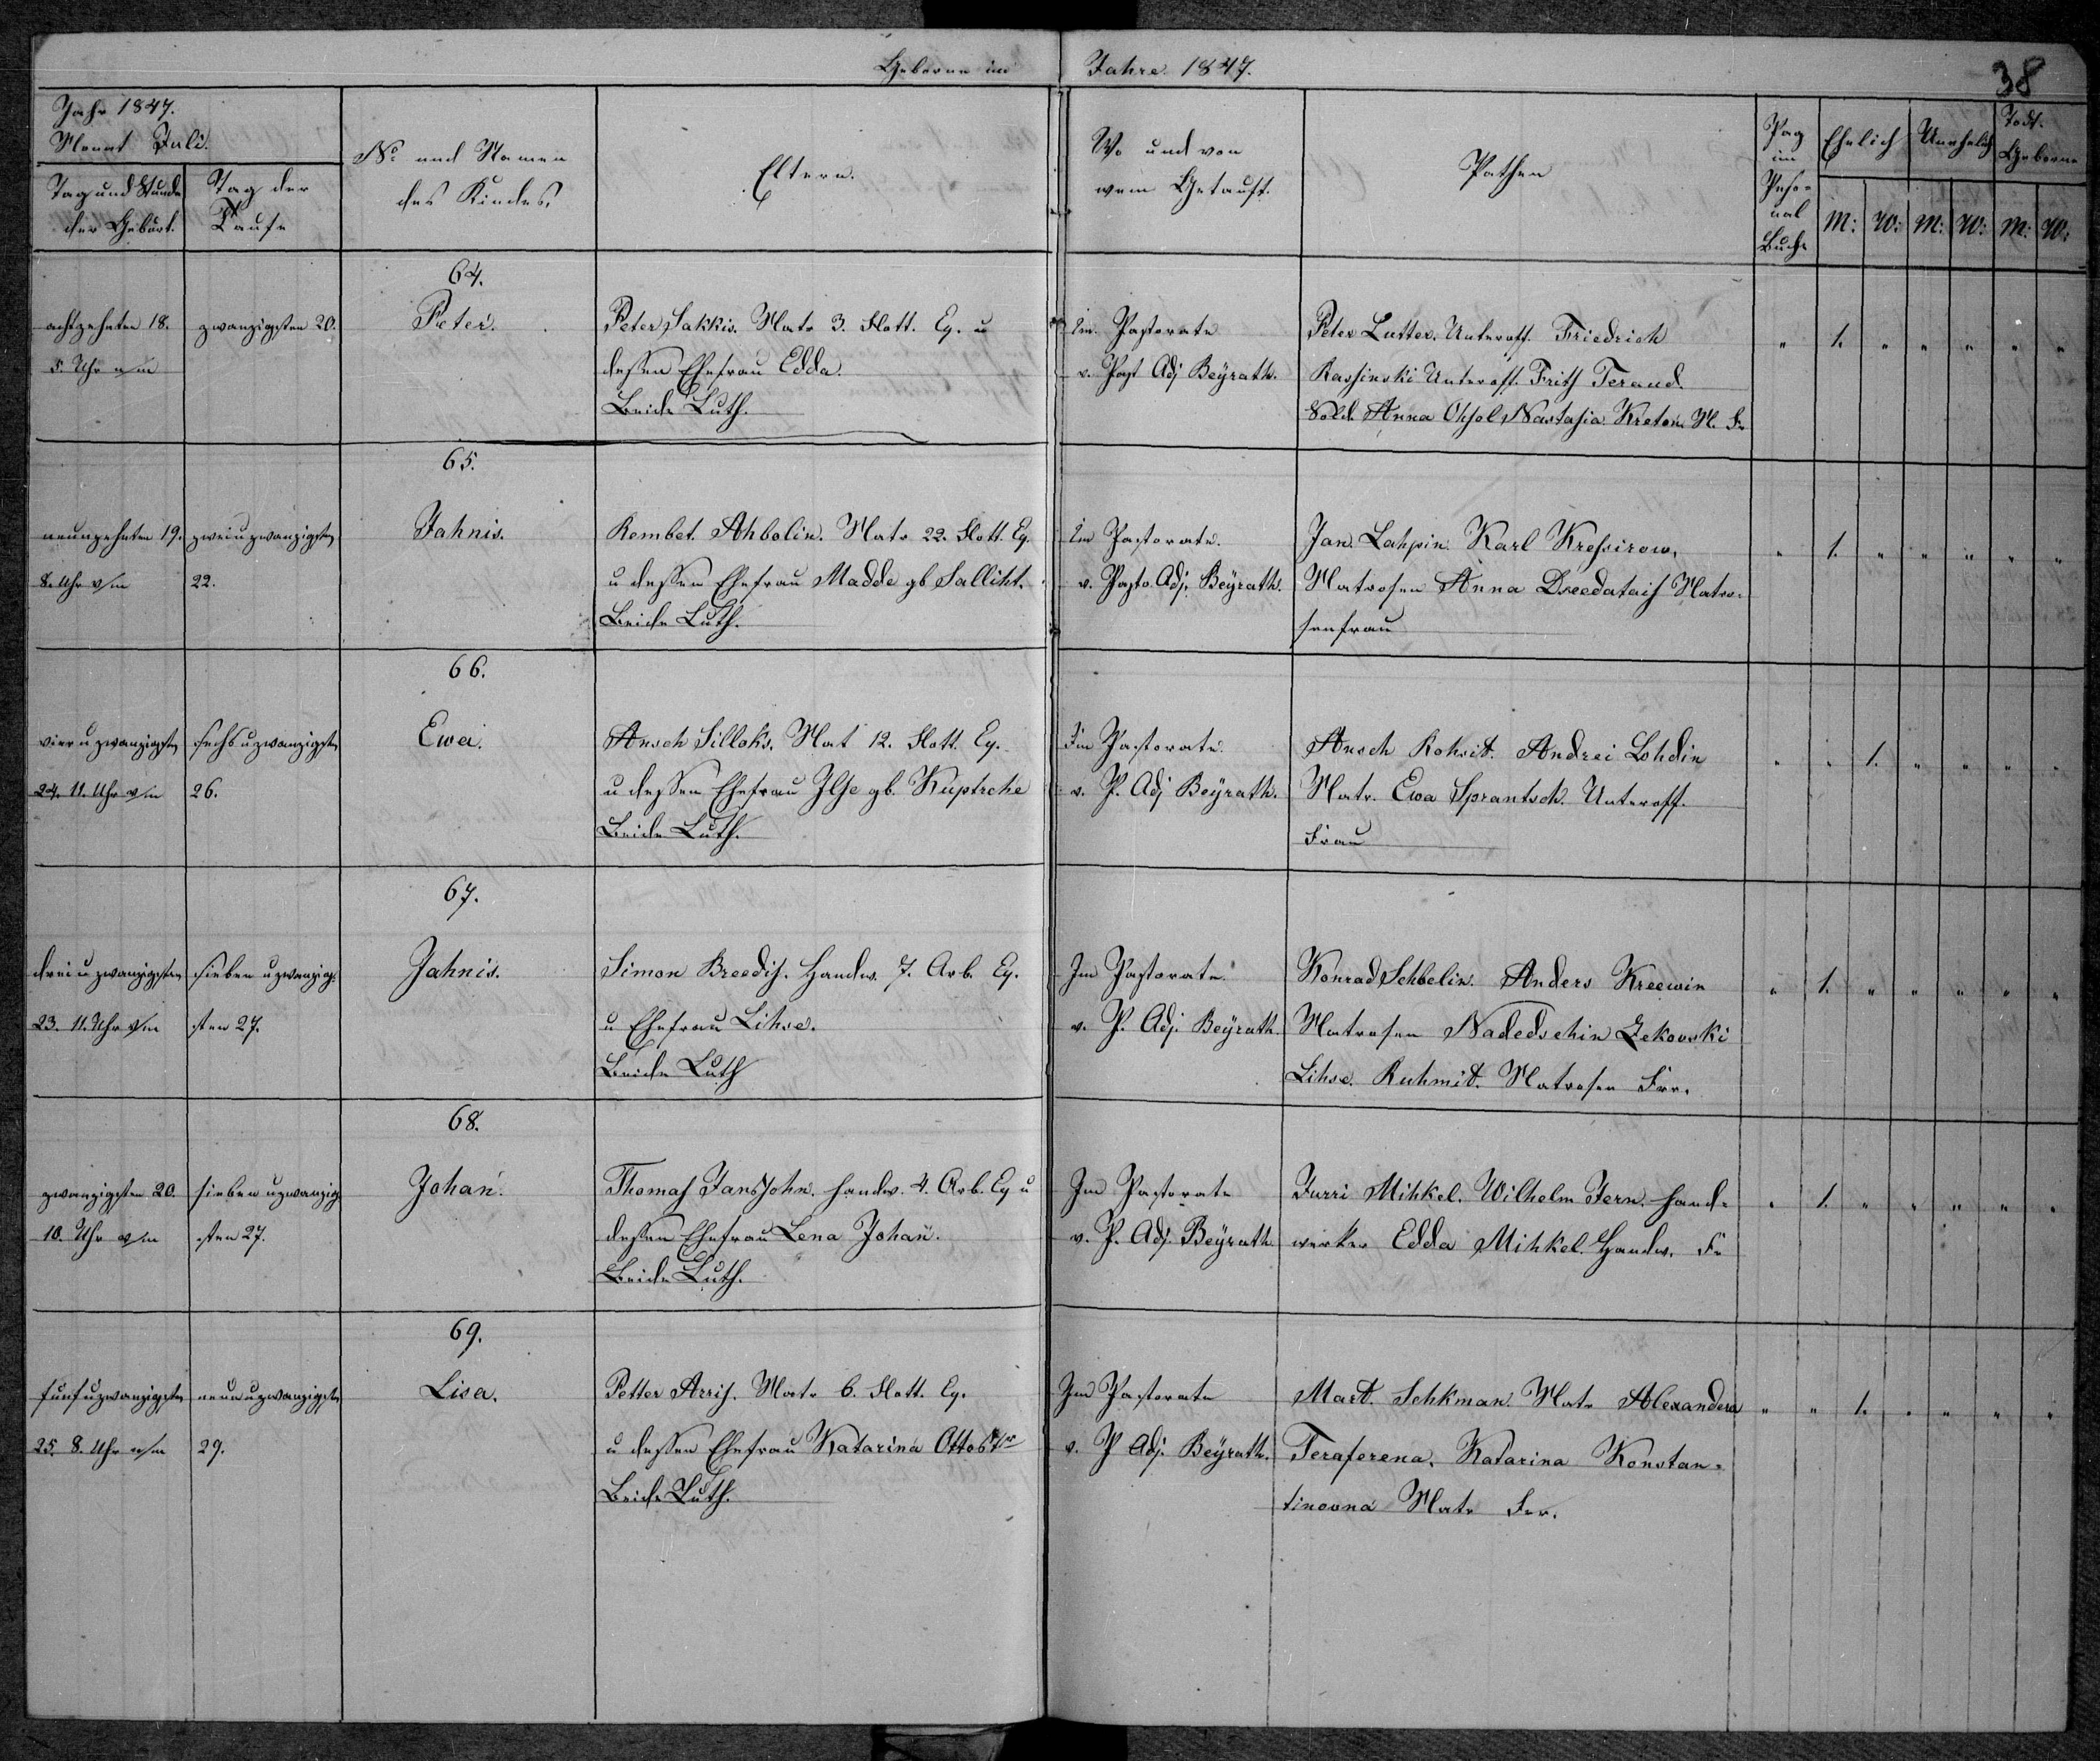 Geborne im Jahre 1847.
38
Jahr 1847.
Monat Juli.
Tag und Stunde
der Geburt.
Tag der
Taufe
No und Namen
des Kindes.
Eltern.
Wo und von
wem Getauft.
Pathen
Pag
im
Perso=
nal
Buche
Ehelich
Unehelich
Todt.
Geborne
M: W: M: W: M: W:
64.
achtzehnten 18.
5. Uhr n/m
zwanzigsten 20.
Peter.
Peter Sakkis. Matr 3. Flott. Eq. u
dessen Ehefrau Edda.
Beide Luth.
Im Pastorate
v. Past Adj Beÿrath.
Peter Lutter. Unteroff. Friedrich
Rassinski Unteroff. Frits Terand.
Sold. Anna Ohsol, Nastasia Kreton M. Fr
" 1. " " " " "
65.
neunzehnten 19.
8. Uhr v/m
zweiuzwanzigsten
22.
Jahnis.
Rembet. Ahbolin. Matr 22. Flott. Eq.
u dessen Ehefrau Madde gb Salliht.
Beide Luth.
Im Pastorate.
v. Pasto. Adj. Beÿrath.
Jan. Lahpin. Karl Kressirow.
Matrosen Anna Dreedatais Matro=
senfrau
" 1. " " " " "
66.
vier u zwanzigsten
24. 11. Uhr v/m
sechsuzwanzigsten
26.
Ewa.
Ansch Silloks. Mat 12. Flott. Eq.
u dessen Ehefrau Ilse gb. Kuptsche
Beide Luth.
Im Pastorate.
v. P. Adj Beÿrath.
Ansch Rohsit. Andrei Lohdin
Matr. Ewa Sprantsch. Unteroff.
Frau
" " 1. " " " "
67.
drei u zwanzigsten
23. 11. Uhr v/m
sieben u zwanzig=
sten 27.
Jahnis.
Simon Breedis. Handw. 7. Arb. Eq.
u Ehefrau Lihse.
Beide Luth
Im Pastorate.
v. P. Adj. Beÿrath.
Konrad Sehbelin. Anders Kreewin
Matrosen Nadedschin Zekovski
Lihse. Ruhmit. Matrosen Frr.
" 1. " " " " "
68.
zwanzigsten 20.
10. Uhr v/m
sieben u zwanzig
sten 27.
Johan.
Thomas Jansjohn. Handw. 4. Arb. Eq u
dessen Ehefrau Lena Johan.
Beide Luth.
Im Pastorate
v. P. Adj. Beÿrath
Jurri Mihkel. Wilhelm Jern. Hand=
werker Edda Mihkel. Handw. Fr
" 1. " " " " "
69.
fünfuzwanzigsten
25. 8. Uhr v/m
neunuzwanzigsten
29.
Lisa.
Petter Arris. Matr 6. Flott. Eq.
u dessen Ehefrau Katarina Ottostr
Beide Luth.
Im Pastorate
v. P Adj. Beÿrath.
Mart. Sehkman. Matr Alexandera
Teraferena. Katarina Konstan=
tinovna Matr Frr.
" " 1. " " " "